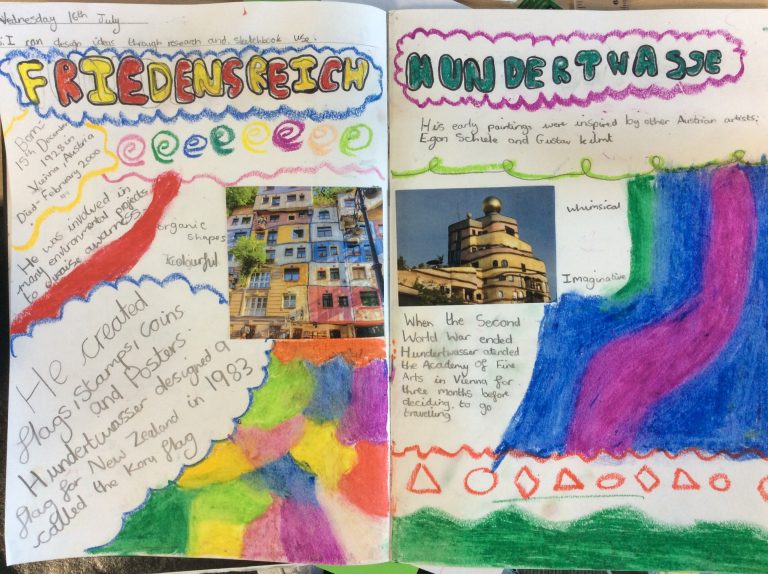 Wednesday 16th July
: I can design ideas through research and sketchbook use.
FRIEDENSREICH
Born-
15th December
1928 in
Vienna, Austria
Died- February 2000
He was involved in
many environmental projects
to raise awareness
organic
shapes
colourful
He created
flags, Stamps, Coins
and Posters
Hundertwasser designed a
flag for New Zealand in 1983
called the Koru flag
HUNDERTWASSE
His early paintings were inspired by other Austrian artists;
Egon Schiele and Gustav klimt
whimsical
Imaginative
When the Second
World War ended
Hundertwasser attended
the Academy Of Fine
Arts in Vienna for
three months before
deciding to go
travelling